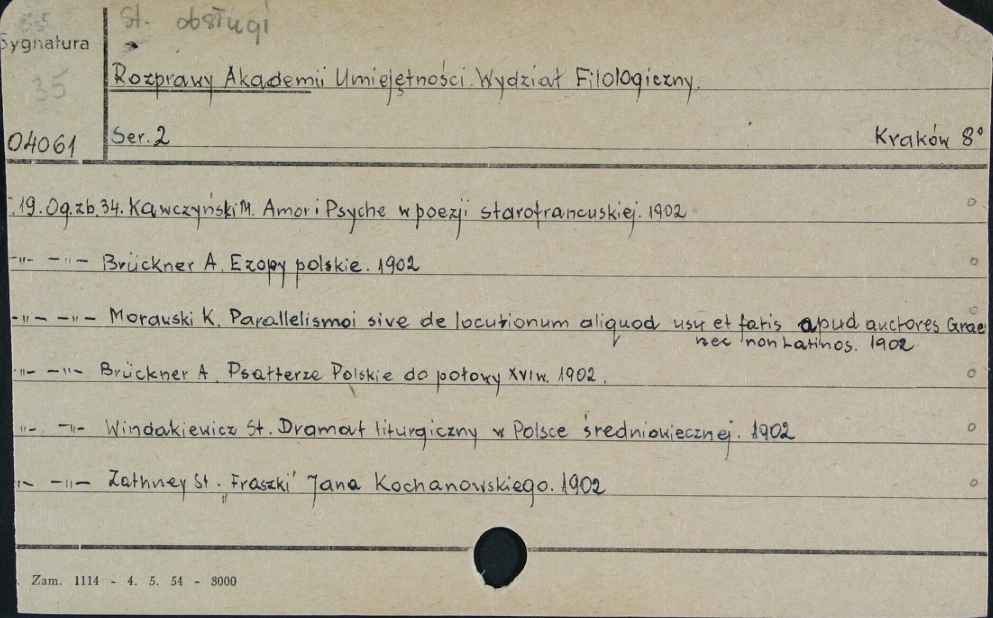 St. obsługi
Sygnatura
35
Rozprawy Akademii Umiejętności. Wydział Filologiczny.
04061
Ser. 2
Kraków 8°
19. Og. zb. 34. Kawczyński M. Amor i Psyche w poezji starofrancuskiej. 1902
-"- -"- Brückner A. Ezopy polskie. 1902
-"- -"- Morawski K. Parallelismoi sive de locutionum aliquod usu et fatis apud auctores Grae
nec non Latinos. 1902
-"- -"- Brückner A. Psałterze Polskie do połowy XVI w. 1902.
-"- -"- Windakiewicz St. Dramat liturgiczny w Polsce średniowiecznej. 1902
-"- -"- Zathney St. „Fraszki" Jana Kochanowskiego. 1902
Zam. 1114 - 4. 5. 54 - 8000